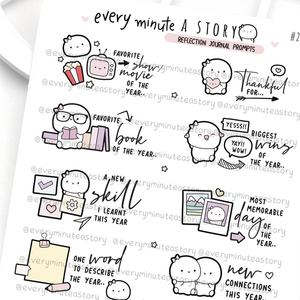 every minute A STORY
REFLECTION JOURNAL PROMPTS
FAVORITE
show/
movie
OF THE
YEAR..
Thankful
FOR...
FAVORITE
book
OF THE YEAR..
YESSS!!
YAY!!
WOW!
BIGGEST
wins
OF THE
YEAR..
A NEW
skill
I LEARNT
THIS YEAR
MOST
MEMORABLE
day
OF THE
YEAR..
ONE word
TO DESCRIBE
THE YEAR..
new
CONNECTIONS
THIS YEAR..
@everyminuteastory